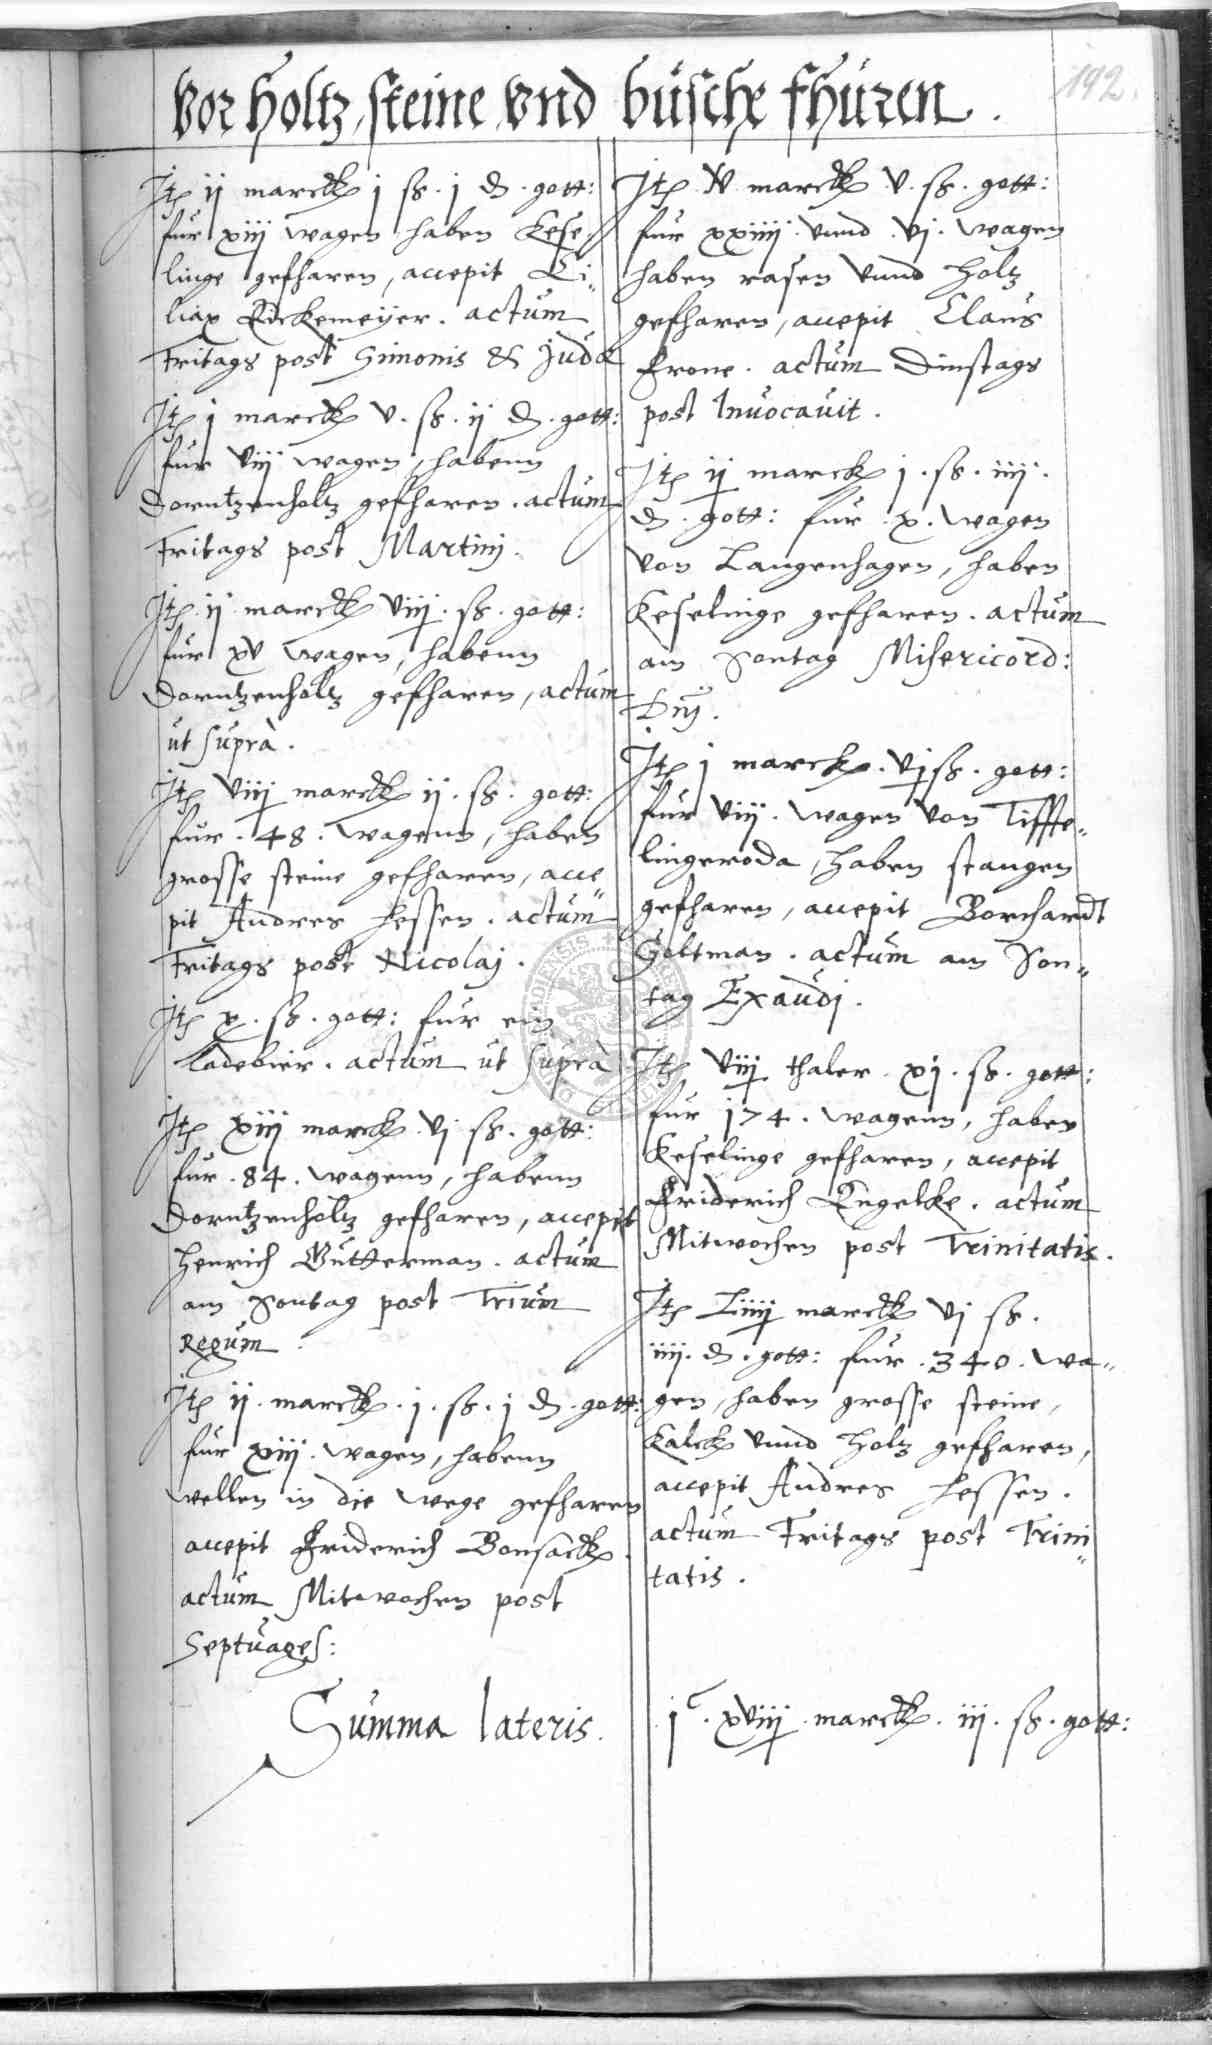 192.
Vor Holtz, steine, vnd büsche fhüren.
Jtem ij marck j ß. j d. gott:
fur xiij wagen haben Kese-
linge gefharen, accepit Ci-
liax Eickemeÿer. actum
Fritags post Simonis & Judæ
Jtem j marck v. ß. ij d. gott:
fur viij wagen, habenn
dorntzenholtz gefharen. actum
Fritags post Martinj.
Jtem ij marck viij. ß. gott:
fur xv wagen, habenn
dorntzenholtz gefharen, actum
ut suprà.
Jtem viij marck ij. ß. gott:
fur. 48. wagenn, haben
grosse steine gefharen, acce
pit Andres Hessen. actum
Fritags post Nicolaj.
Jtem x. ß. gott: fur ein
ladebier. actum ut suprà
Jtem xiij marck vj ß. gott:
fur. 84. wagenn, habenn
dorntzenholtz gefharen, accepit
Henrich Gutterman. actum
am Sontag post Trium
Regum.
Jtem ij. marck. j. ß. j d. gott:
fur xiij. wagen, habenn
wellen in die wege gefharen
accepit Friderich Bonsack.
actum Mitwochen post
Septuages:
Jtem V marck v. ß. gott:
fur xxiiij. vnnd. vj. wagen
haben rasen vnnd holtz
gefharen, accepit Claus
Frone. actum Dinstags
post Inuocauit.
Jtem ij marck j. ß. iiij.
d. gott: fur. x. wagen
von Langenhagen, haben
Keselinge gefharen. actum
am Sontag Misericord:
Dnj.
Jtem j marck. vj ß. gott:
fur viij. wagen von Tiffte-
lingeroda, haben stangen
gefharen, accepit Borchardt
Goltman. actum am Son-
tag Exaudj.
Jtem viij thaler xj. ß. gott:
fur 174. wagenn, haben
Keselinge gefharen, accepit
Friderich Engelke. actum
Mitwochen post Trinitatis.
Jtem Liiij marck vj ß.
iiij. d. gott: fur. 340. wa-
gen, haben grosse steine,
Kalck vnnd holtz gefharen,
accepit Andres Hessen.
actum Fritags post Trini
tatis.
Summa lateris. jC. xviij marck. iij. ß. gott: